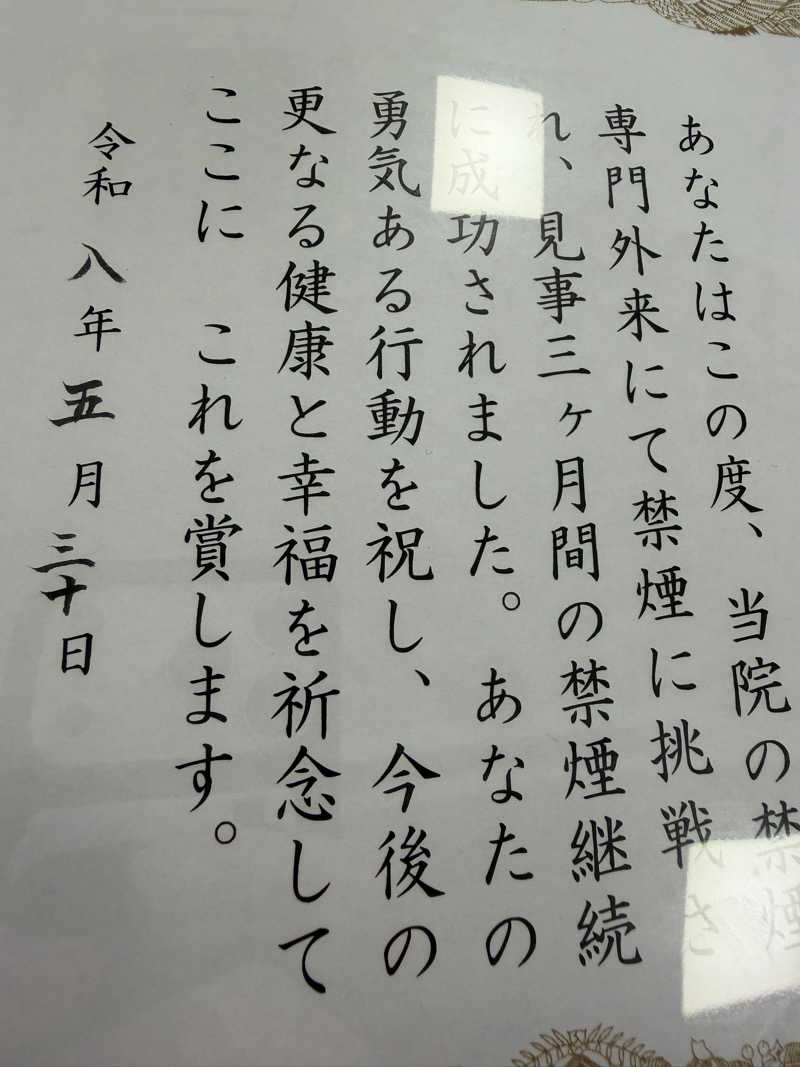 あなたはこの度、当院の禁煙
専門外来にて禁煙に挑戦さ
れ、見事三ヶ月間の禁煙継続
に成功されました。あなたの
勇気ある行動を祝し、今後の
更なる健康と幸福を祈念して
ここに　これを賞します。
令和八年五月三十日